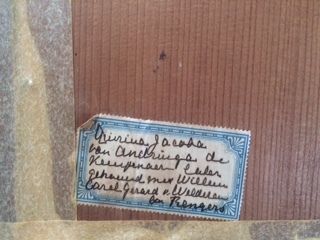 Quirina Jacoba
van Andringa de
Kempenaer. Later
gehuwd met Willem
Carel Gerard v. Welderen
bon Rengers